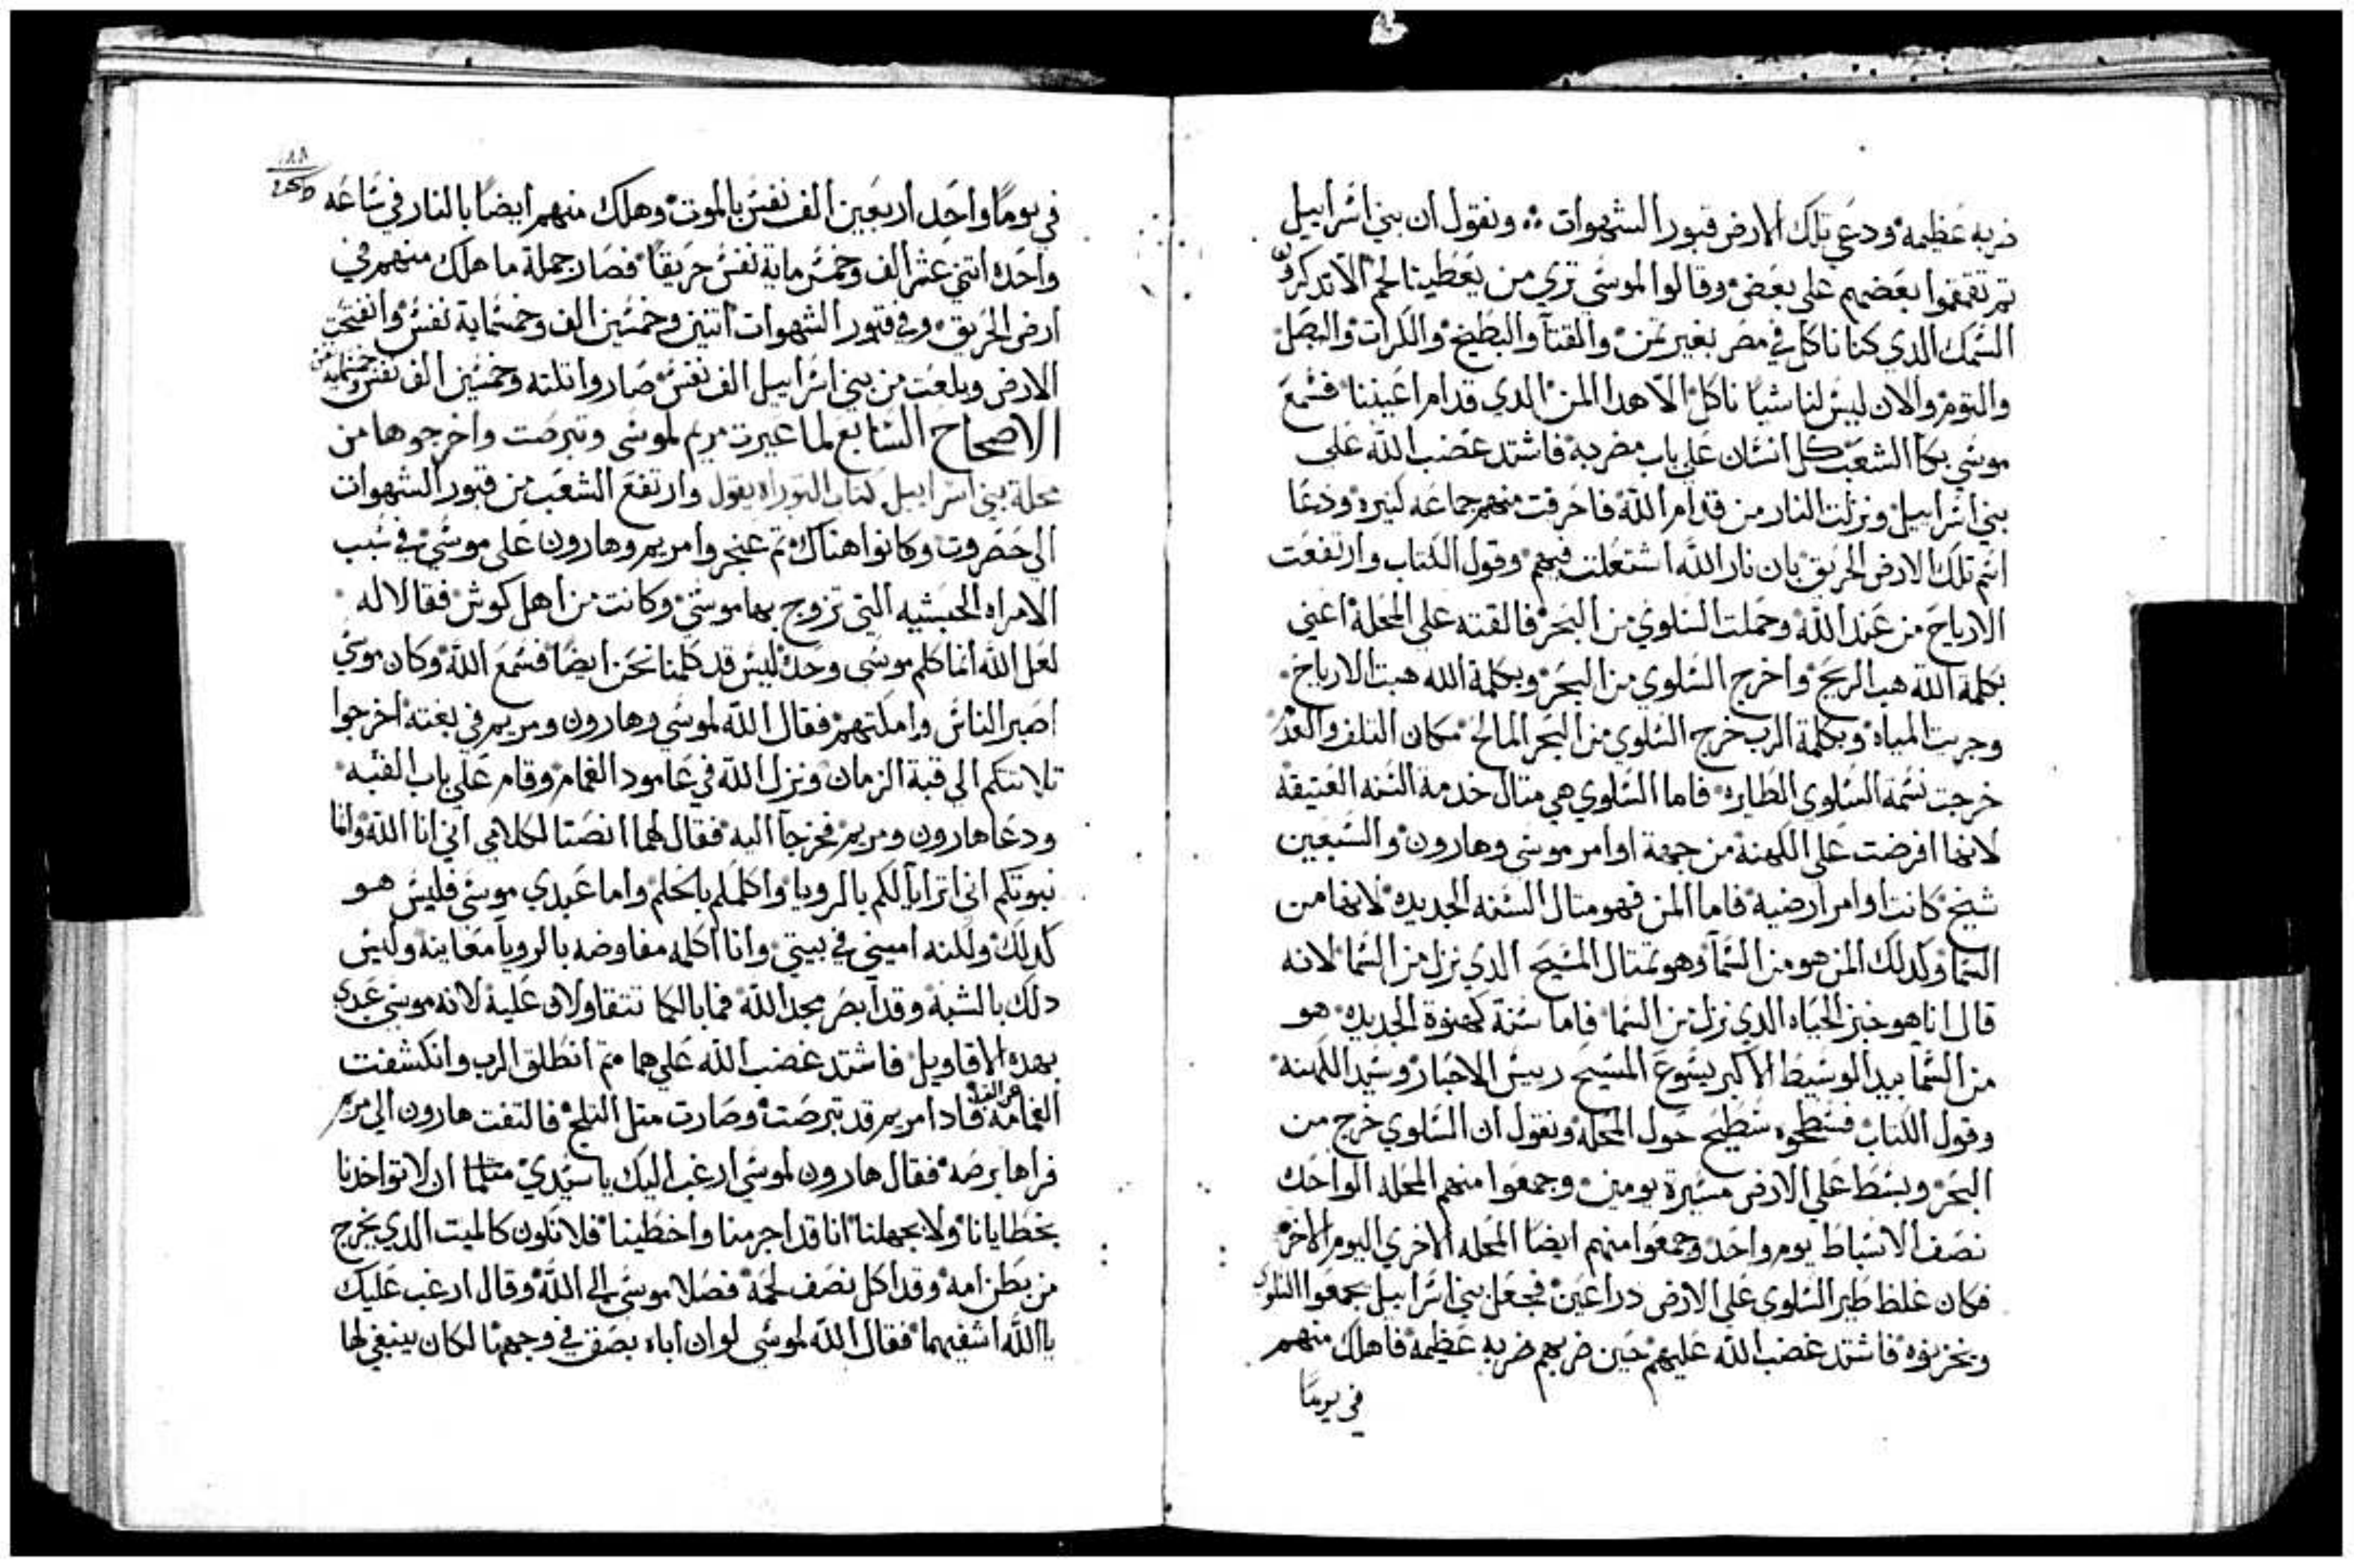 ضربه عظيمه ودعي تلك الارض قبور الشهوات ونقول ان بني اسراييل
تم تقمقموا بعضهم علي بعض وقالوا لموسي تري من يعطينا لحم الا تدكر
السمك الدي كنا ناكل في مصر بغير تمن والقتآ والبطيخ والكرات والبصل
والتوم والان ليس لنا شيا ناكل الا هدا المن الدي قدام اعيننا فسمع
موسي بكا الشعب كل انسان علي باب مضربه فاشتد غضب الله علي
بني اسراييل ونزلت النار من قدام الله فاحرقت منهم جماعه كتيره ودعا
اسم تلك الارض الحريق بان نار الله اشتعلت فيهم وقول الكتاب وارتفعت
الارياح من عند الله وحملت السلوي من البحر فالقته علي المحلة اعني
بكلمة الله هب الريح واخرج السلوي من البحر وبكلمة الله هبت الارياح
وجريت المياه وبكلمة الرب خرج السلوي من البحر المالح مكان التلف
خرجت نسمة السلوي الطايره فاما السلوي هي متال خدمة السنه العتيقة
لانها افرضت علي الكهنة من جهة اوامر موسي وهارون والسبعين
شيخ كانت اوامر ارضيه فاما المن فهو متال السنه الجديده لانها من
السما وكدلك المن هو من السمآ وهو تمتال المسيح الدي نزل من السما لانه
قال انا هو خبز الحياه الدي نزل من السما فاما سنة كهنوة الجديده هو
من السمآ بيد الوسيط الاكبر يسوع المسيح رييس الاحبار وسيد الكهنه
وقول الكتاب فسطحوه سطيح حول المحله ونقول ان السلوي خرج من
البحر وبسط علي الارض مسيرة يومين وجمعوا منهم المحله الواحده
نصف الاسباط يوم واحد وجمعوا منهم ايضا المحله الاخري اليوم الاخر
فكان غلظ طير السلوي علي الارض دراعين فجعل بني اسراييل يجمعوا السلوي
ويخزنوه فاشتد غضب الله عليهم حين ضربهم ضربه عظيمة فاهلك منهم
في يومًا
١٨٨
في يومًا واحد اربعين الف نفس بالموت وهلك منهم ايضًا بالنار في ساعه
واحده اتني عشر الف وخمس ماية نفس حريقًا فصار جملة ما هلك منهم في
ارض الحريق وفي قبور الشهوات اتنين وخمسين الف وخمسماية نفس وانفتحت
الارض وبلعت من بني اسراييل الف نفس صاروا تلته وخمسين الف نفس وخمسماية
الاصحاح السابع لما عيرت مريم لموسي وتبرصت واخرجوها من
محلة بني اسراييل كتاب التوراه يقول وارتفع الشعب من قبور الشهوات
الي حضروت وكانوا هناك تم عنجروا مريم وهارون علي موسي في سبب
الامراه الحبشيه التي تزوج بها موسي وكانت من اهل كوش فقالا له
لعل الله انما كلم موسي وحده ليس قد كلمنا نحن ايضًا فسمع الله وكان موسي
اصبر الناس وامكنهم فقال الله لموسي وهارون ومريم في بغته اخرجوا
تلاتتكم الي قبة الزمان ونزل الله في عامود الغمام وقام علي باب القبه
ودعا هارون ومريم فخرجآ اليه فقال لهما انصتا لكلامي اني انا الله وانا
نبوتكم اني اترايآ لكم بالرويا واكلمكم بالحلم واما عبدي موسي فليس هو
كدلك ولكنه اميني في بيتي وانا اكلمه مفاوضه بالرويا معاينه وليس
دلك بالشبه وقد ابصر مجد الله فما بالكما تتقاولان عليه لانه موسي عبدي
بهده الاقاويل فاشتد غضب الله عليهما تم انطلق الرب وانكشفت
الغمامه عن القبه فادا مريم قد تبرصت وصارت متل التلج فالتفت هارون الي مريم
فراها برصه فقال هارون لموسي ارغب اليك يا سيدي ان لا تواخدنا
بخطايانا ولا بجهلنا انا قد اجرمنا واخطينا فلا تكون كالميت الدي يخرج
من بطن امه وقد اكل نصف لحمه فصلا موسي الي الله وقال ارغب عليك
يا الله اشفيهما فقال الله لموسي لو ان اباه بصق في وجهها لكان ينبغي لها